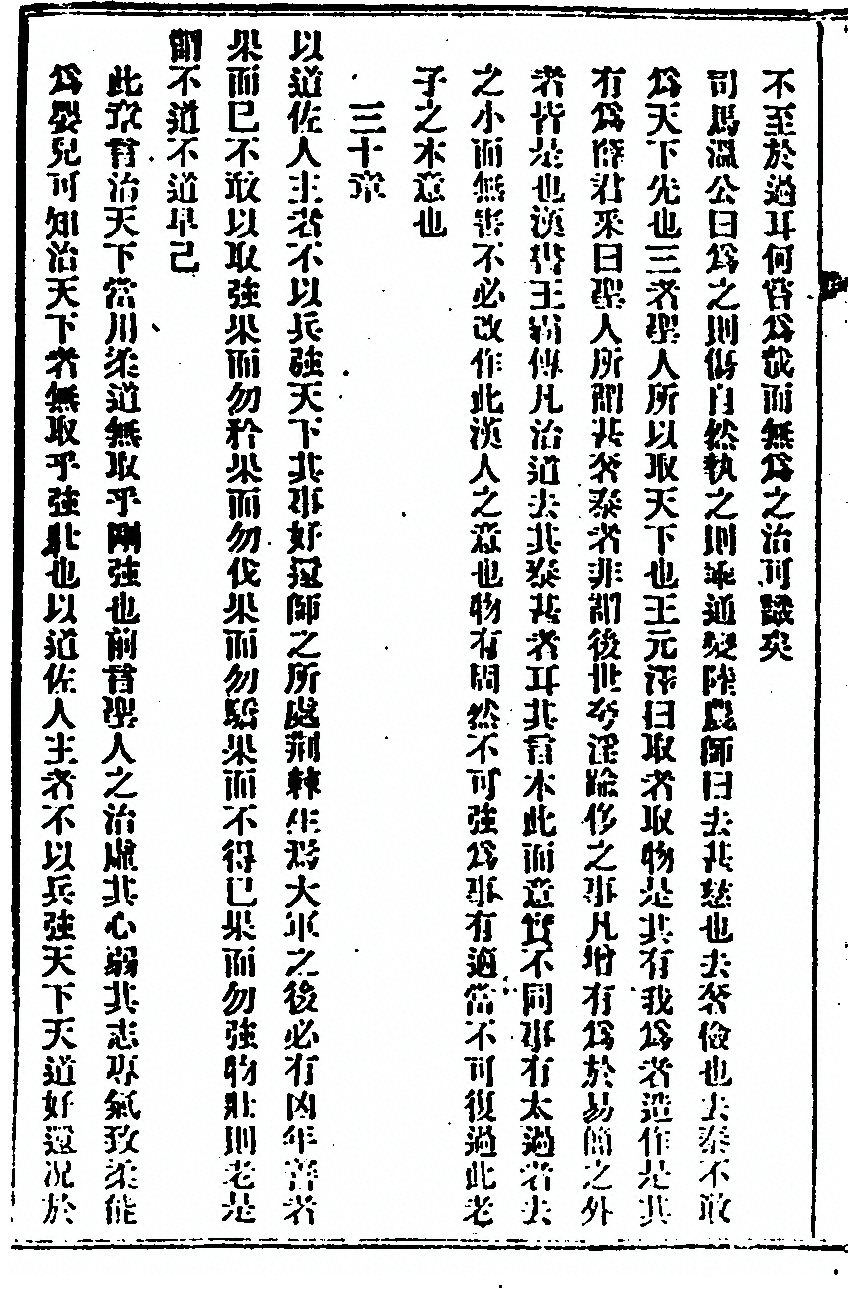 不至於過耳何嘗爲哉而無爲之治可識矣
司馬溫公曰爲之則傷自然執之則乖通變陸農師曰去甚慈也去奢儉也去泰不敢
爲天下先也三者聖人所以取天下也王元澤曰取者取物是其有我爲者造作是其
有爲薛君采曰聖人所謂甚奢泰者非謂後世夸淫踰侈之事凡增有爲於易簡之外
者皆是也漢書王霸傳凡治道去其泰甚者耳其言本此而意實不同事有太過者去
之小而無害不必改作此漢人之意也物有固然不可強爲事有適當不可復過此老
子之本意也
三十章
以道佐人主者不以兵強天下其事好還師之所處荆棘生焉大軍之後必有凶年善者
果而已不敢以取強果而勿矜果而勿伐果而勿驕果而不得已果而勿強物壯則老是
謂不道不道早已
此章言治天下當用柔道無取乎剛強也前言聖人之治虛其心弱其志專氣致柔能
爲嬰兒可知治天下者無取乎強壯也以道佐人主者不以兵強天下天道好還况於